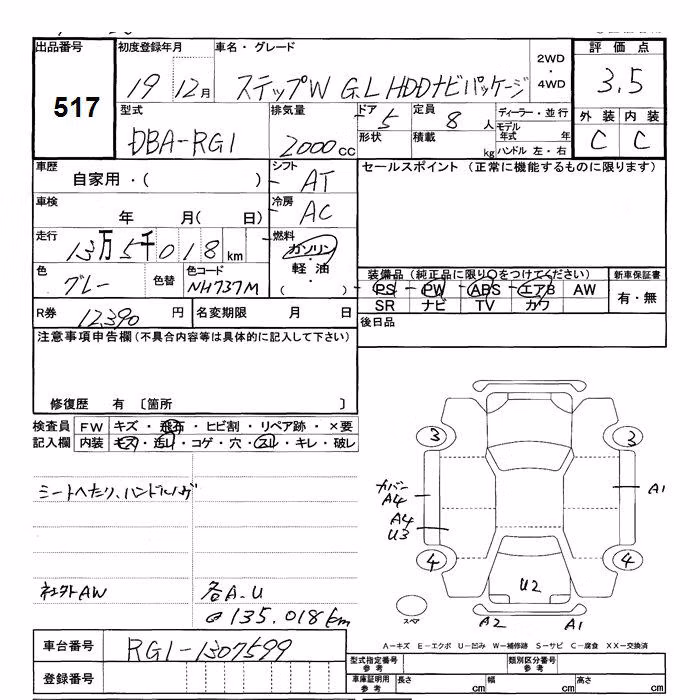 出品番号 初度登録年月 車名・グレード 2WD ・ 4WD 評価点
517 19 12月 ステップW G.L HDDナビパッケージ 3.5
型式 排気量 ドア 定員 ディーラー・並行 外装 内装
DBA-RG1 2000cc 5 8人 モデル年式 年 C C
形状 積載 kg ハンドル 左・右
車歴 シフト セールスポイント (正常に機能するものに限ります)
自家用・( ) AT
車検 冷房
年 月( 日) AC
走行 燃料
13万5千018km ガソリン
色 色替 色コード 軽油 装備品 (純正品に限り○をつけてください) 新車保証書
グレー NH737M ( ) PS PW ABS エアB AW 有・無
SR ナビ TV カワ
R券 12,390円 名変期限 月 日 後日品
注意事項申告欄(不具合内容等は具体的に記入して下さい)
修復歴 有 〔箇所 〕
検査員 FW キズ・飛石・ヒビ割・リペア跡・×要
記入欄 内装 キズ・汚レ・コゲ・穴・スレ・キレ・破レ
シートヘたり、ハンドル
社外AW 各A.U
135.018km
3 3
カバー A4 A1
A4
U3
4 4
U2
スペア A2 A1
車台番号 RG1-1307599
A-キズ E-エクボ U-凹み W-補修跡 S-サビ C-腐食 XX-交換済
登録番号
型式指定番号 参考 類別区分番号 参考
車庫証明用 参考 長さ cm 幅 cm 高さ cm